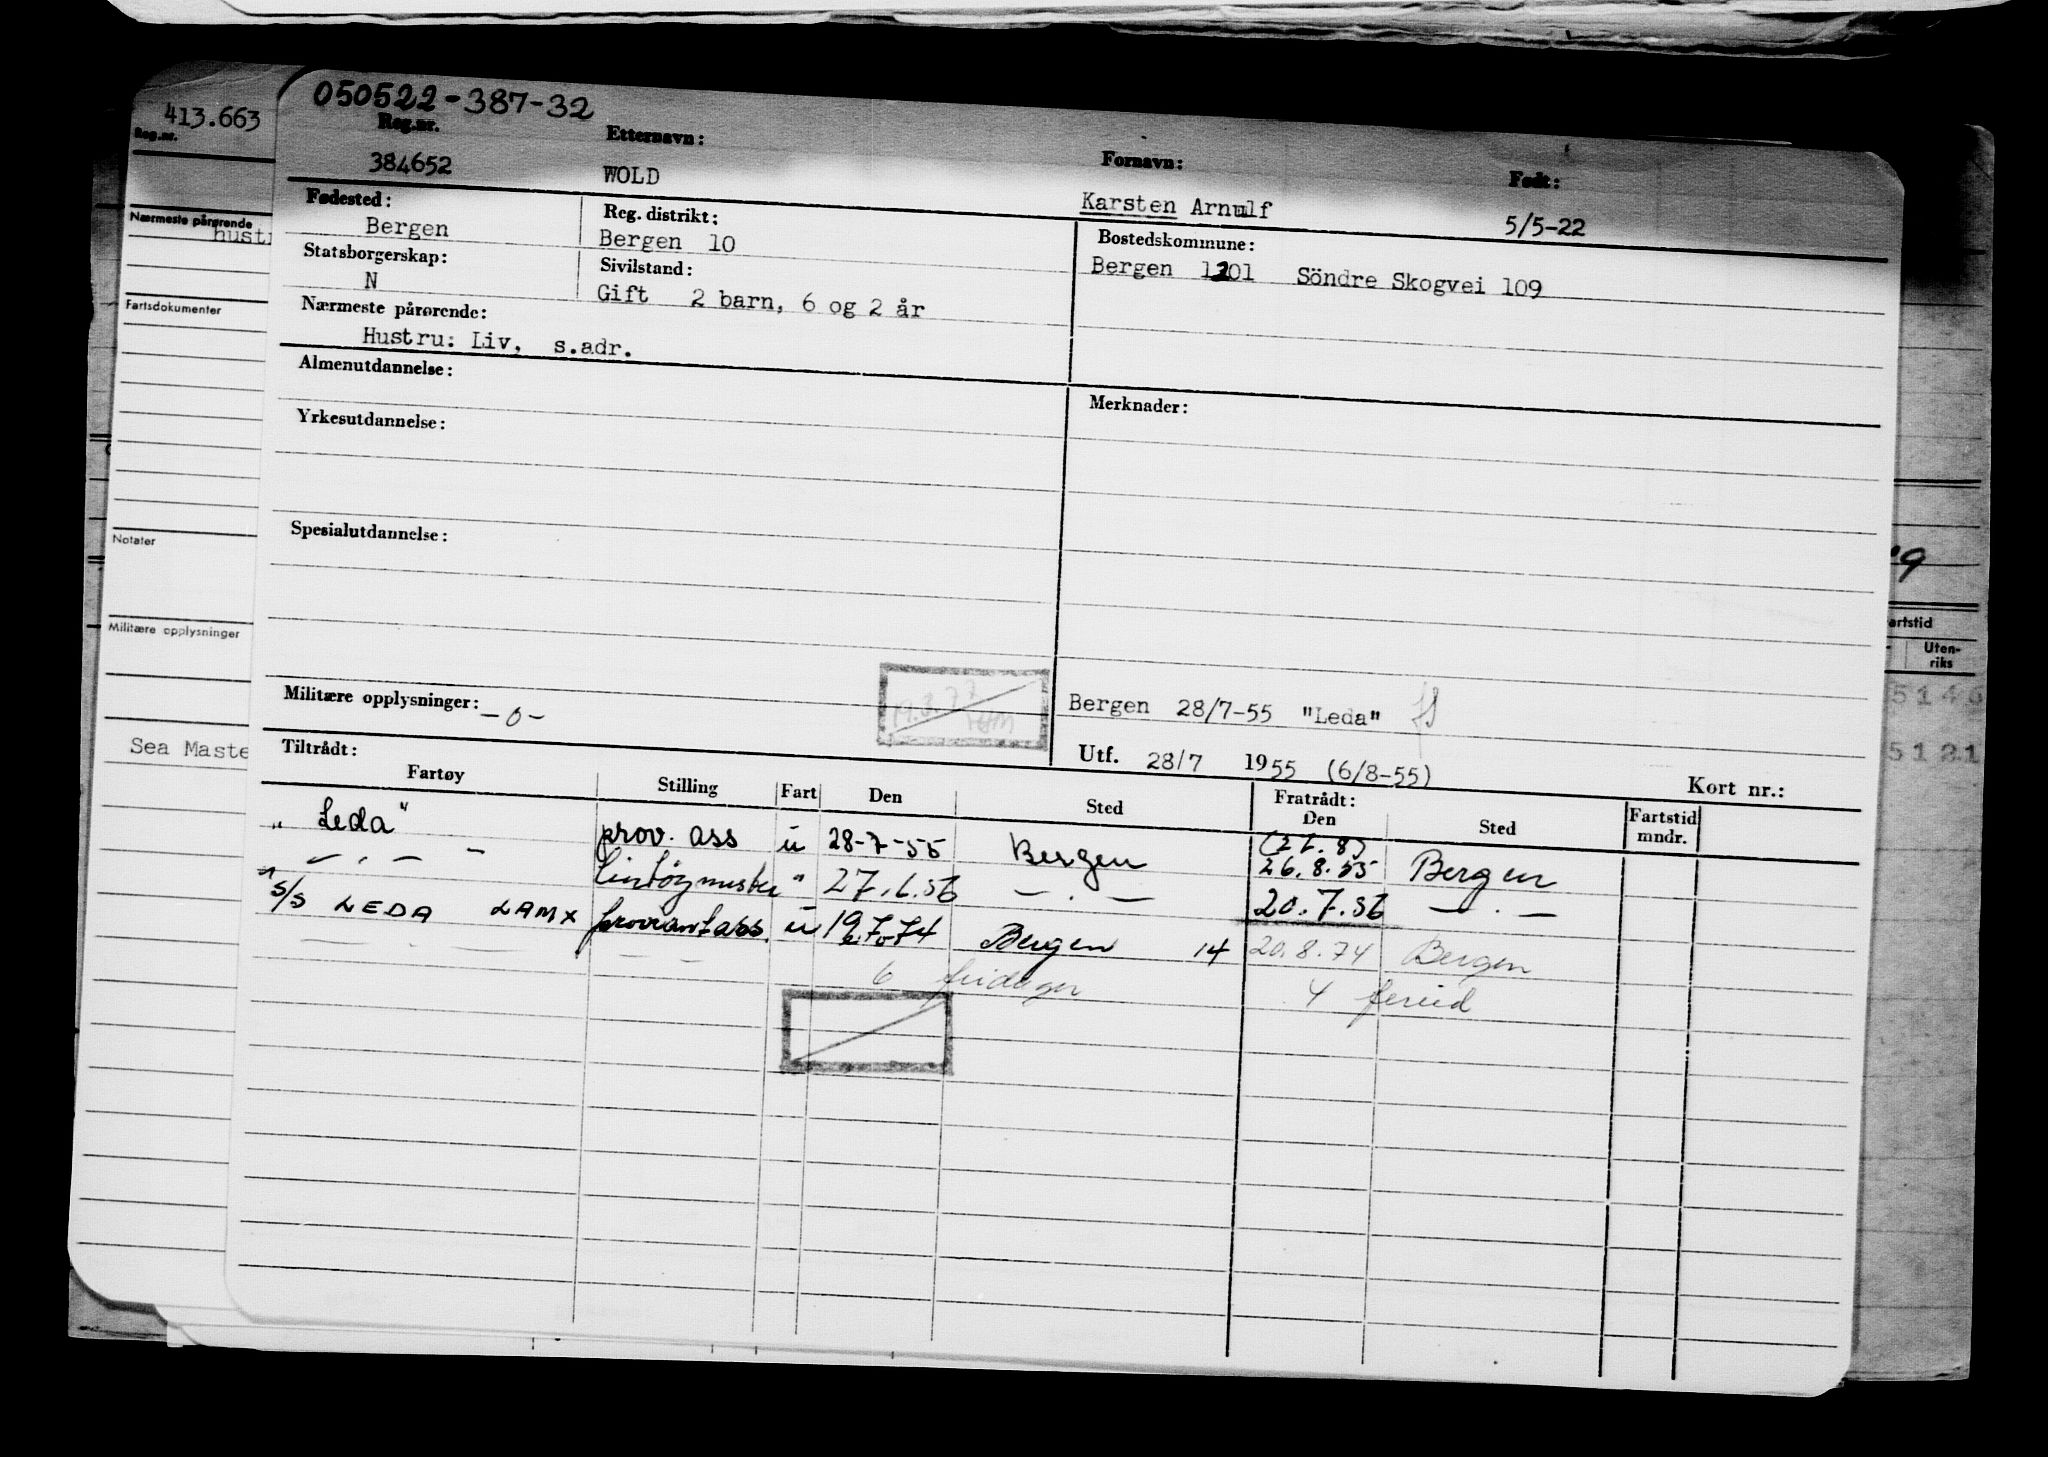 413.663
Reg.nr.
Nærmeste pårørende
hust
Fartsdokumenter
Notater
Militære opplysninger
Sea Maste
050522-387-32
Reg.nr. Etternavn: Fornavn: Født:
384652 WOLD Karsten Arnulf 5/5-22
Fødested: Reg. distrikt: Bostedskommune:
Bergen Bergen 10 Bergen 1301 Söndre Skogvei 109
Statsborgerskap: Sivilstand:
N Gift 2 barn, 6 og 2 år
Nærmeste pårørende:
Hustru: Liv, s.adr.
Almenutdannelse: Merknader:
Yrkesutdannelse:
Spesialutdannelse:
Militære opplysninger: -o- Bergen 28/7-55 "Leda"
Utf. 28/7 1955 (6/8-55) Kort nr.:
Tiltrådt: Fratrådt:
Fartøy Stilling Fart Den Sted Den Sted Fartstid mndr.
"Leda" prov. ass u 28-7-55 Bergen 26.8.55 Bergen
— . — — " 27.6.56 — . — 20.7.56 — . —
s/s LEDA LAMX proviantass. u 19.7.74 Bergen 14 20.8.74 Bergen
6 fridager 4 feried
artstid
Uten-
riks
5146
5121